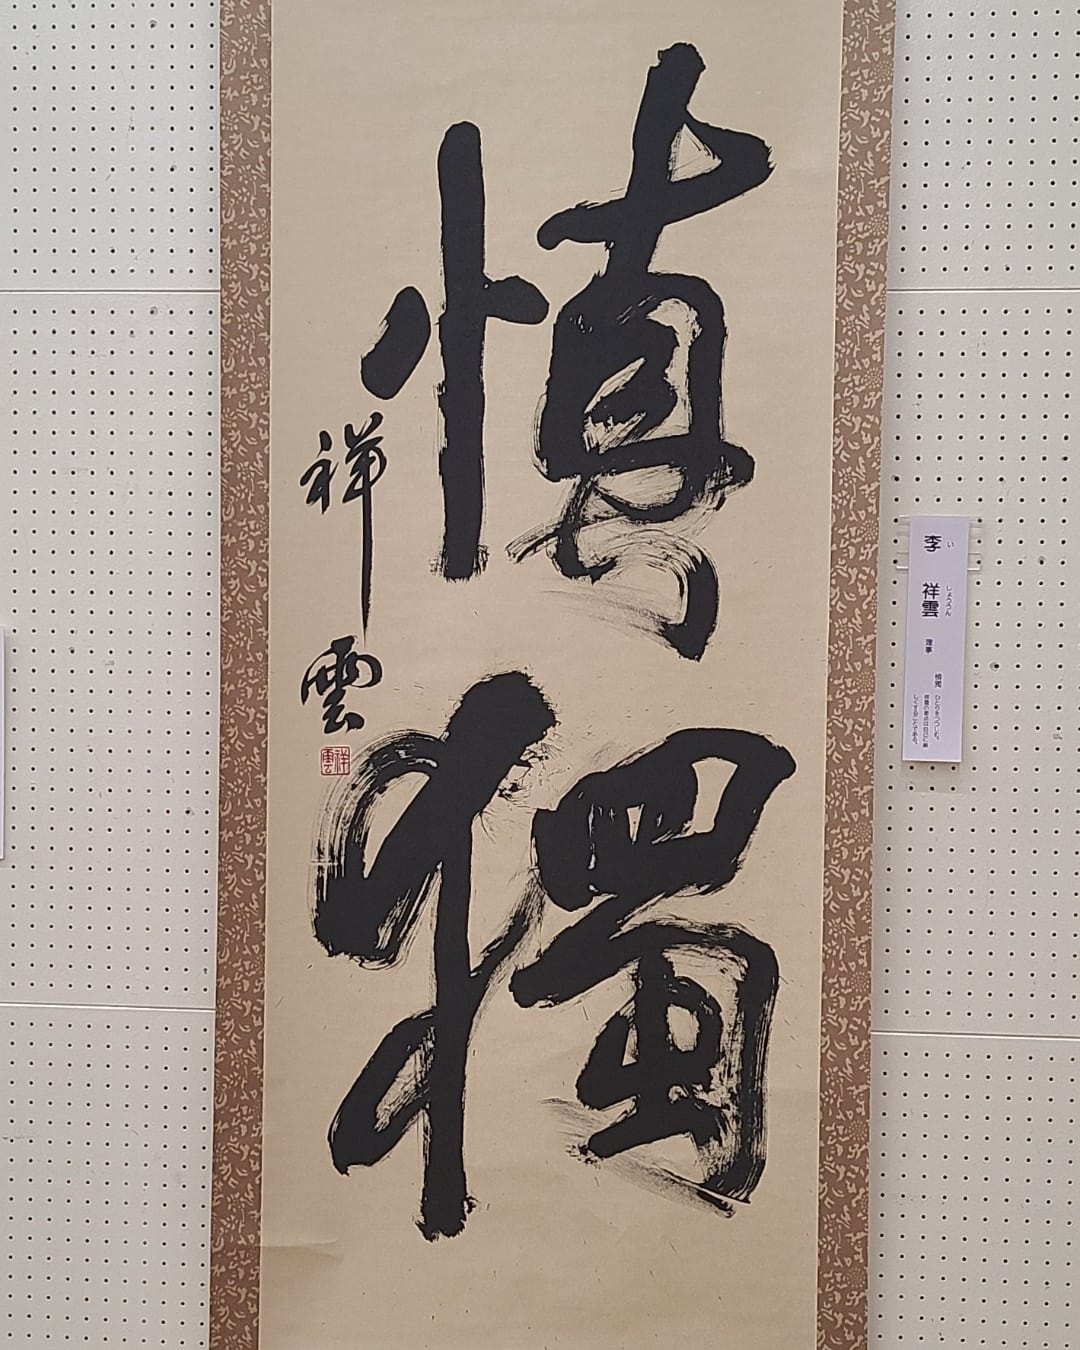 慎獨
祥雲
祥雲
李 祥雲 理事
い しょううん
慎獨 ひとりをつつしむ。